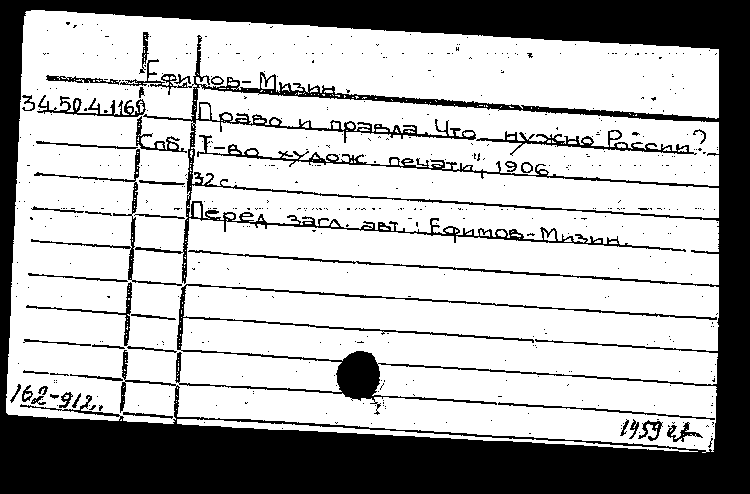 Ефимов-Мизин.
34.50.4.1160
Право и правда. Что нужно России?
Спб., "Т-во худож. печати", 1906.
32 с.
Перед загл. авт.: Ефимов-Мизин.
162-912
1959